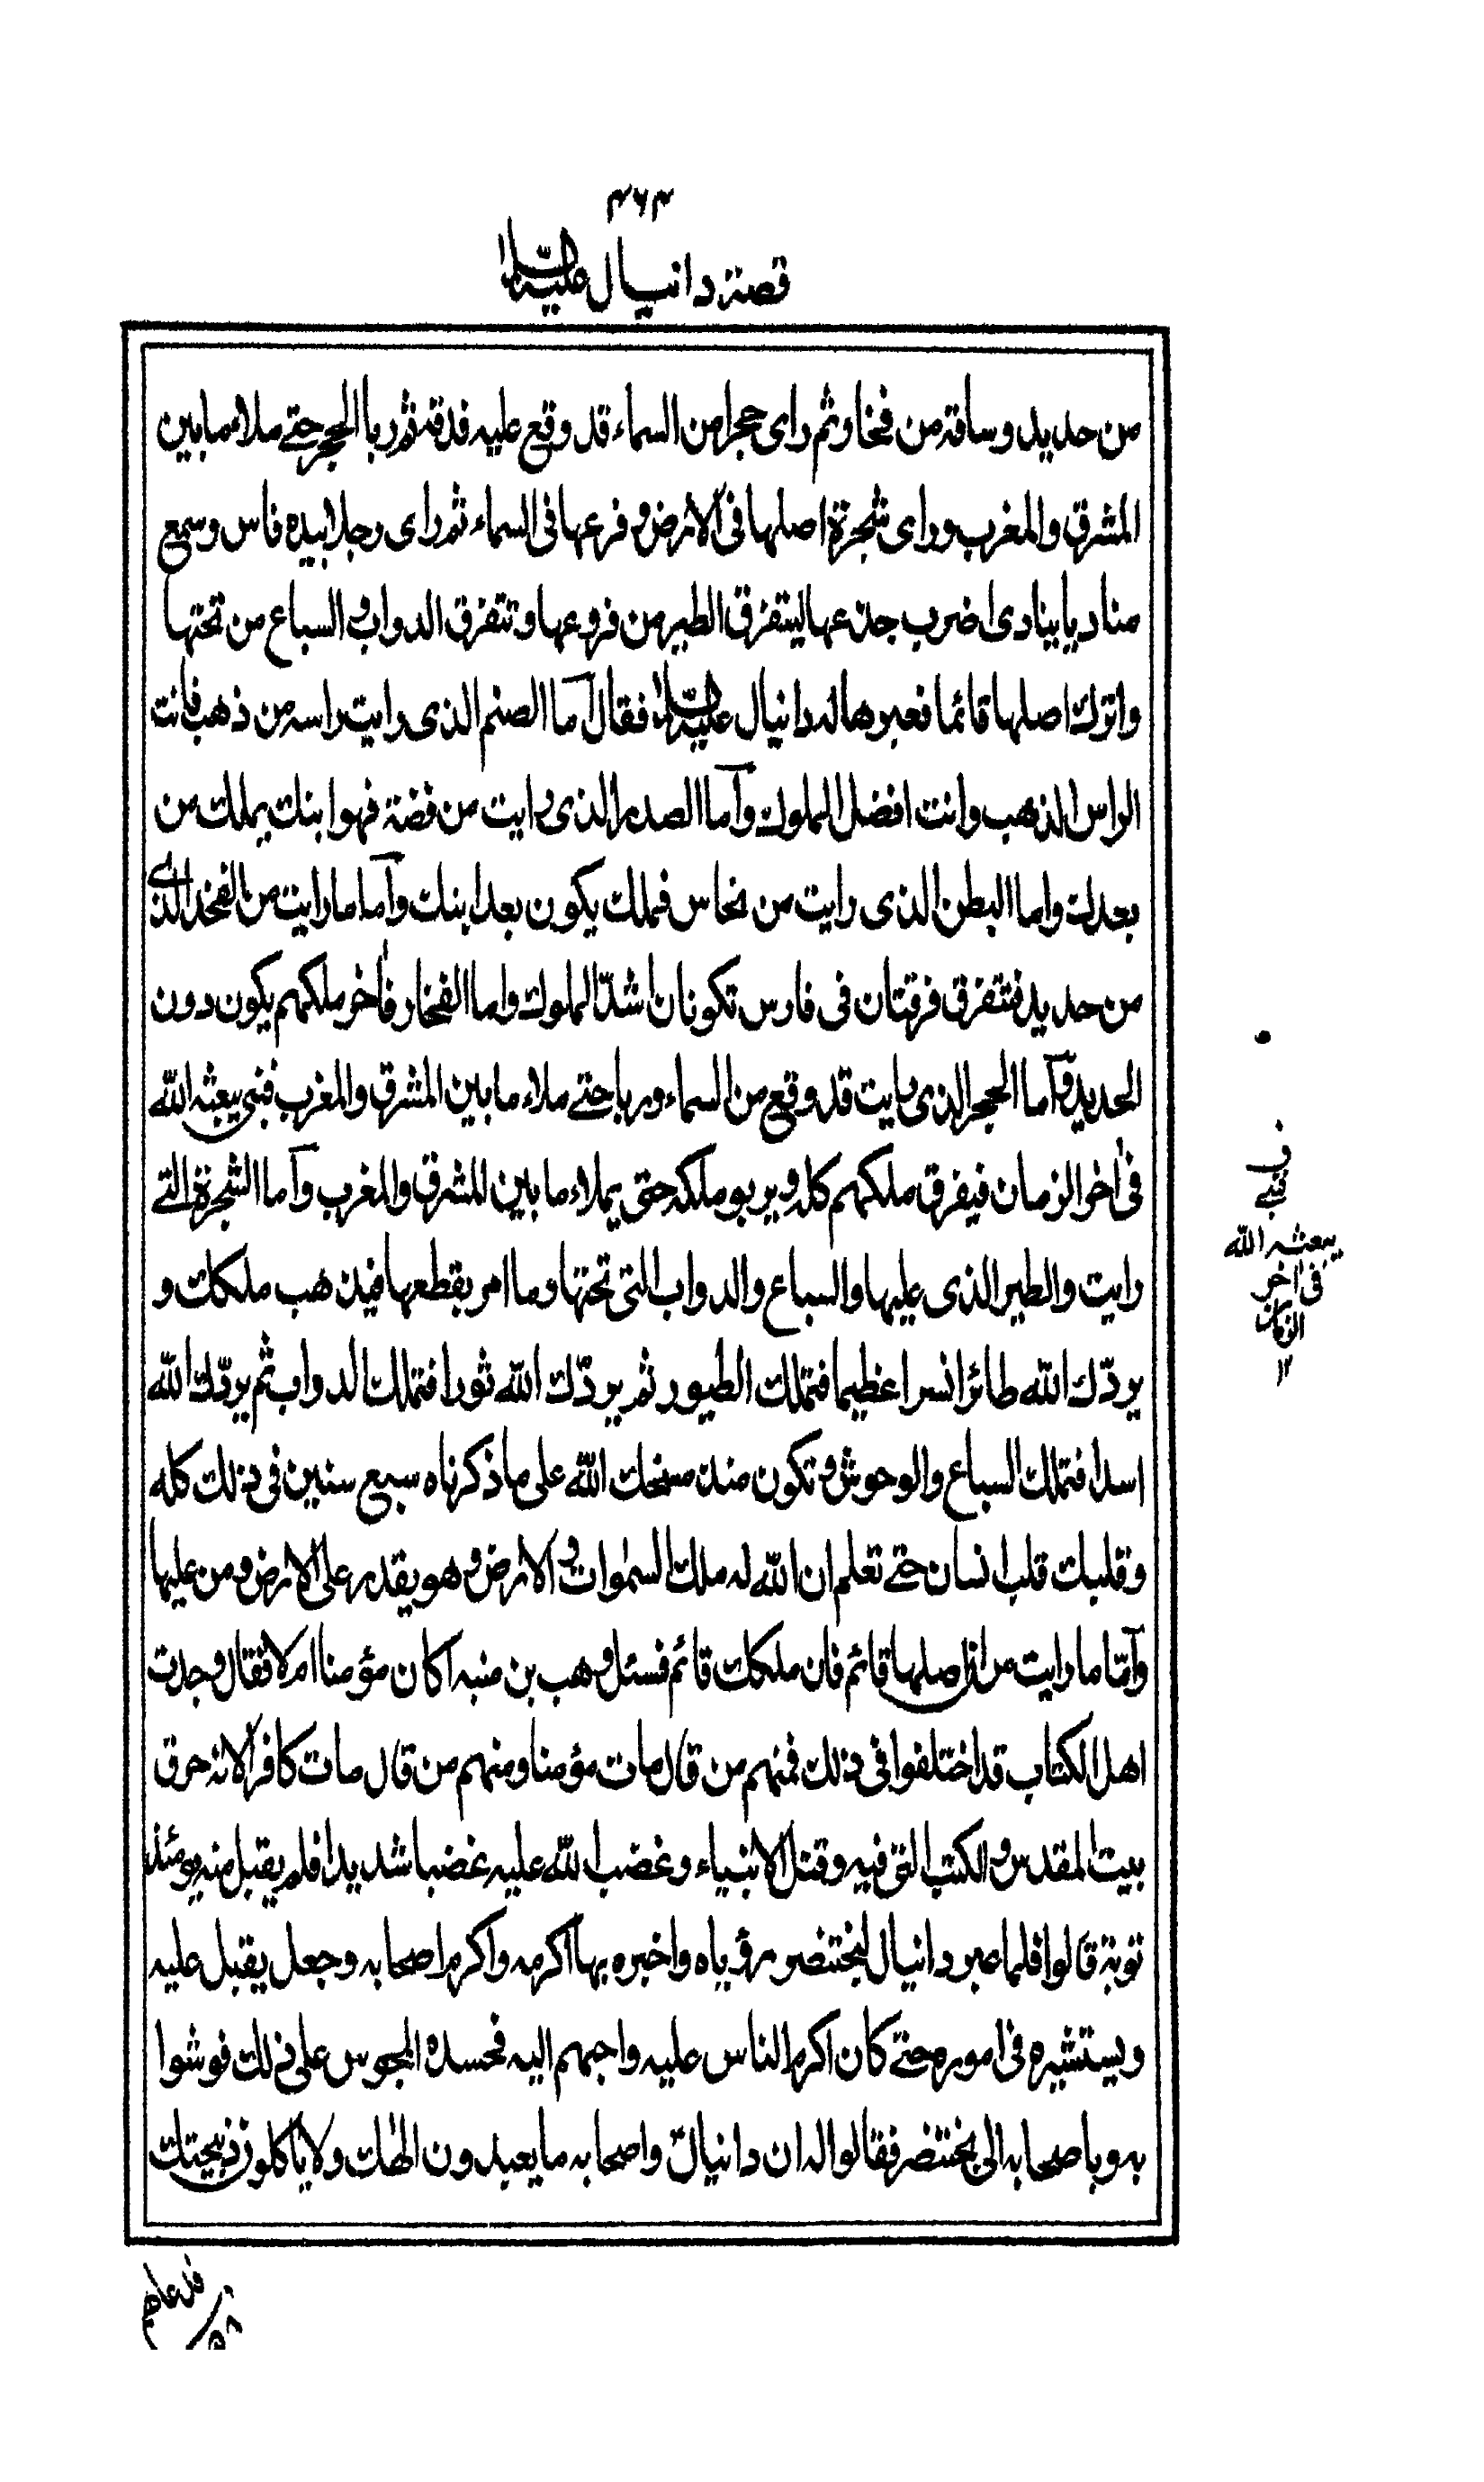 ۴۶۴
قصة دانيال عليه السلام
من حديد وساقه من فخار ثم راى حجرا من السماء قد وقع عليه فدقه ثم ربا الحجر حتے ملاء ما بين
المشرق والمغرب وراى شجرة اصلها فى الارض وفرعها فى السماء ثم راى رجلا بيده فاس وسمع
مناديا ينادى اضرب جذعها ليتفرق الطير من فروعها وتتفرق الدواب والسباع من تحتها
واترك اصلها قائما فعبرها له دانيال عليه السلام فقال آما الصنم الذى رايت راسه من ذهب فانت
الراس الذهب وانت افضل الملوك وآما الصدر الذى رايت من فضة فهو ابنك يملك من
بعدك واما البطن الذى رايت من نحاس فملك يكون بعد ابنك وآما ما رايت من الفخذ الذى
من حديد فتفرق فرقتان فى فارس تكونان اشدّ الملوك واما الفخار فآخر ملكهم يكون دون
الحديد وآما الحجر الذى رايت قد وقع من السماء وربا حتے ملاء ما بين المشرق والمغرب فنبى يبعثه الله
فى آخر الزمان فيفرق ملكهم كله ويربو ملكه حتى يملاء ما بين المشرق والمغرب وآما الشجرة التے
رايت والطير الذى عليها والسباع والدواب التى تحتها وما امر بقطعها فيذهب ملكك و
يردّك الله طائرا نسرا عظيما فتملك الطيور ثم يردّك الله ثورا فتملك الدواب ثم يردّك الله
اسدا فتملك السباع والوحوش وتكون منذ مسخك الله على ما ذكرناه سبع سنين فى ذلك كله
وقلبك قلب انسان حتے تعلم ان الله له ملك السموات والارض وهو يقدر على الارض ومن عليها
وآمّا ما رايت من ان اصلها قائم فان ملكك قائم فسئل وهب بن منبه اكان مؤمنا ام لا فقال وجدت
اهل الكتاب قد اختلفوا فى ذلك فمنهم من قال مات مؤمنا ومنهم من قال مات كافرا لانه حرق
بيت المقدس والكتب التى فيه وقتل الانبياء وغضب الله عليه غضبا شديدا فلم يقبل منه يومئذ
توبة قالوا فلما عبر دانيال لبختنصر رؤياه واخبره بها اكرمه واكرم اصحابه وجعل يقبل عليه
ويستشيره فى اموره حتے كان اكرم الناس عليه واحبهم اليه فحسده المجوس على ذلك فوشوا
به وباصحابه الى بختنصر فقالوا له ان دانيال واصحابه ما يعبدون الهك ولا ياكلون ذبيحتك
ف
فنبے
يبعثه الله
فى آخر
الزمان
۱۲
فدعاهم